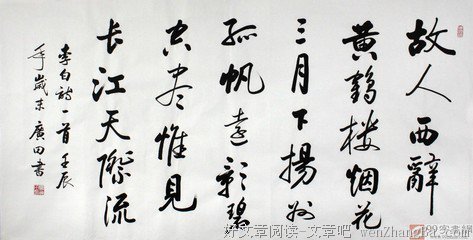 故人西辭
黄鶴楼烟花
三月下揚州
孤帆遠影碧
空尽惟見
长江天際流
李白詩一首壬辰
年歲末廣田書
好文章阅读-文章吧 wenzhangba.com